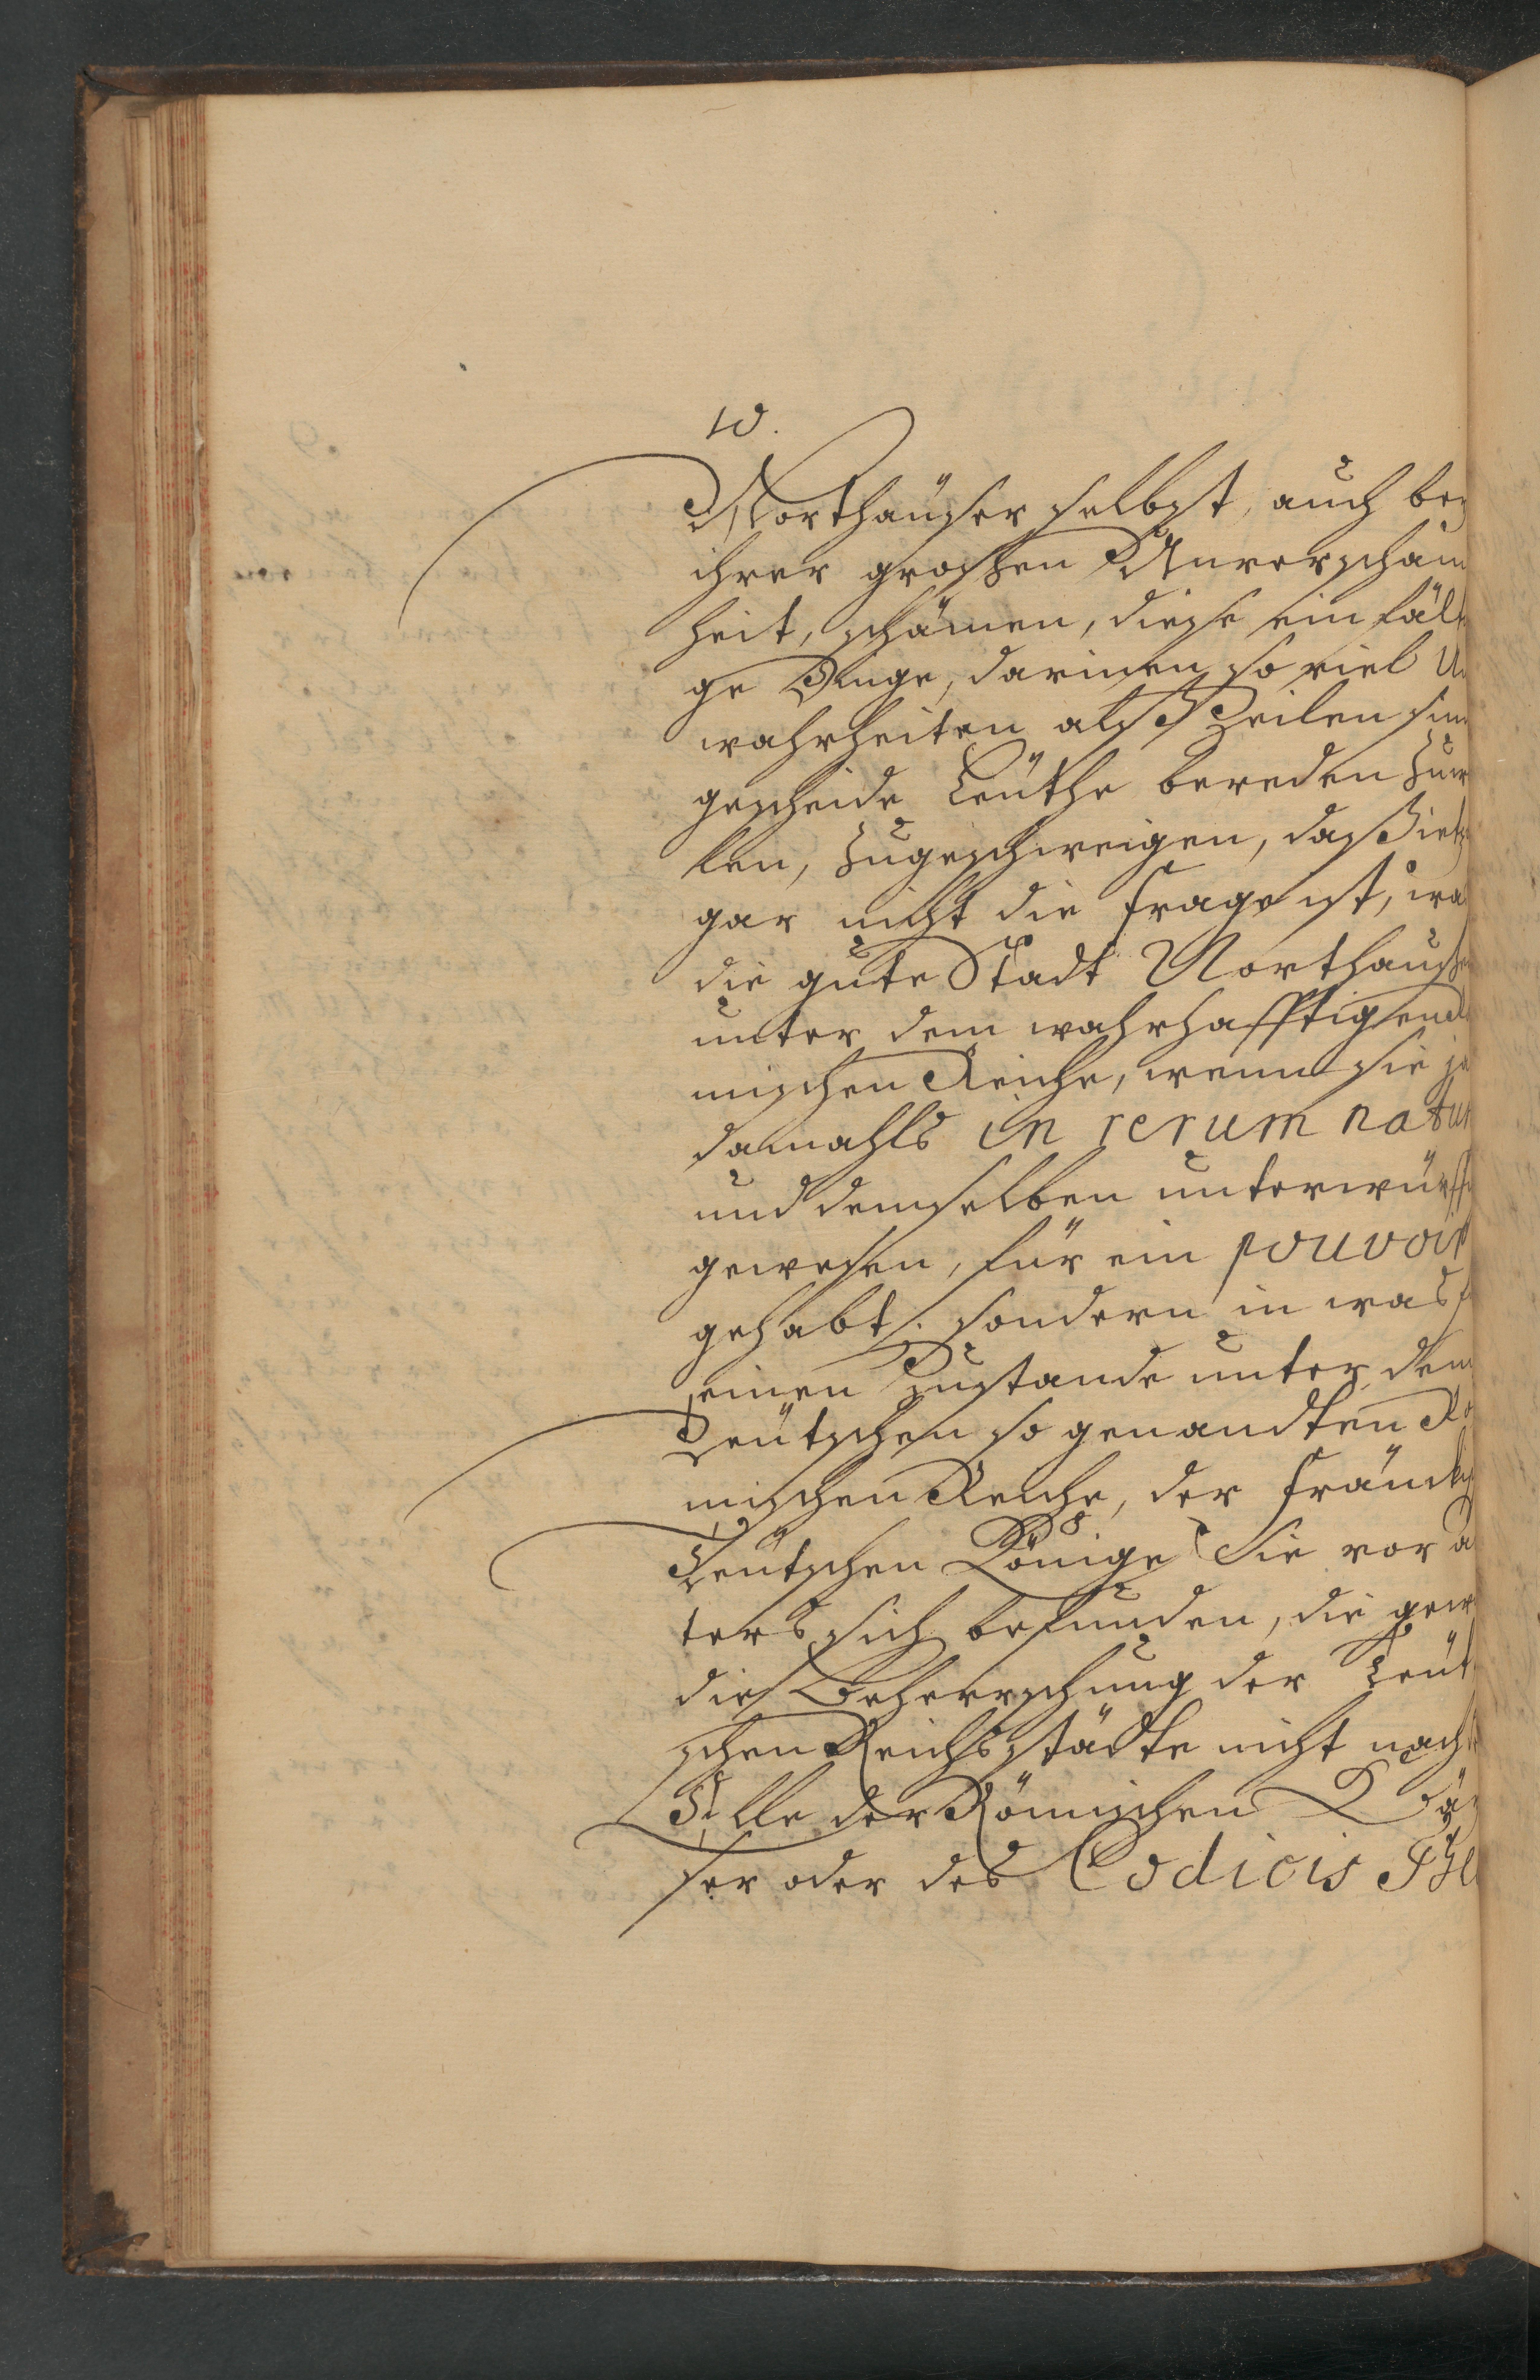 10.
Northäuser selbst, auch bey
ihrer großen Unverschäm
heit, schämen, diese einfält
ge Dinge, darinnen so viel Un
wahrheiten als Zeilen sin
gescheide Leüthe bereden zuw
len, zugeschweigen, daß ietz
gar nicht die Frage ist, wa
die gute Stadt Northausen
unter dem wahrhafftigen
mischen Reiche, wenn sie je
damahls in rerum natur
und demselben unterwürff
gewesen, für ein pouvoir
gehabt, sondern in was f
einen Zustande unter dem
Teütschen so genandten Rö
mischen Reiche, der Fränck
Teütschen Könige Sie vor a
ters sich befunden, die gew
die Beherrschung der Teüt
schen Reichsstädte nicht nach
Stelle der Römischen Käy
ser oder des Codicis The